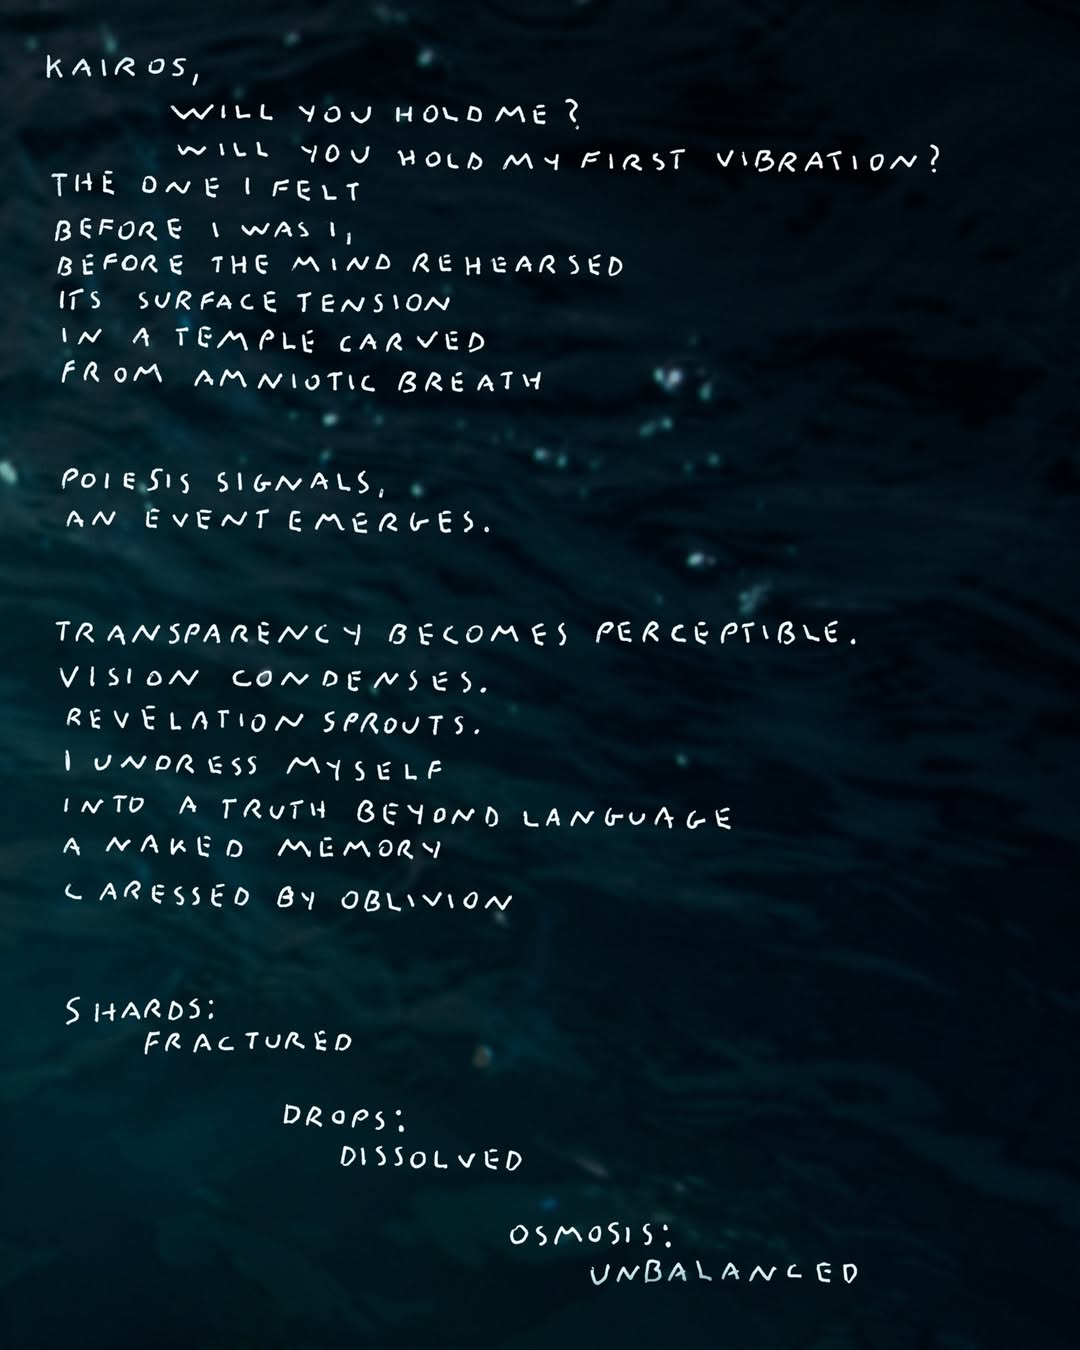 KAIROS,
WILL YOU HOLD ME?
WILL YOU HOLD MY FIRST VIBRATION?
THE ONE I FELT
BEFORE I WAS I,
BEFORE THE MIND REHEARSED
ITS SURFACE TENSION
IN A TEMPLE CARVED
FROM AMNIOTIC BREATH
POIESIS SIGNALS,
AN EVENT EMERGES.
TRANSPARENCY BECOMES PERCEPTIBLE.
VISION CONDENSES.
REVELATION SPROUTS.
I UNDRESS MYSELF
INTO A TRUTH BEYOND LANGUAGE
A NAKED MEMORY
CARESSED BY OBLIVION
SHARDS:
FRACTURED
DROPS:
DISSOLVED
OSMOSIS:
UNBALANCED